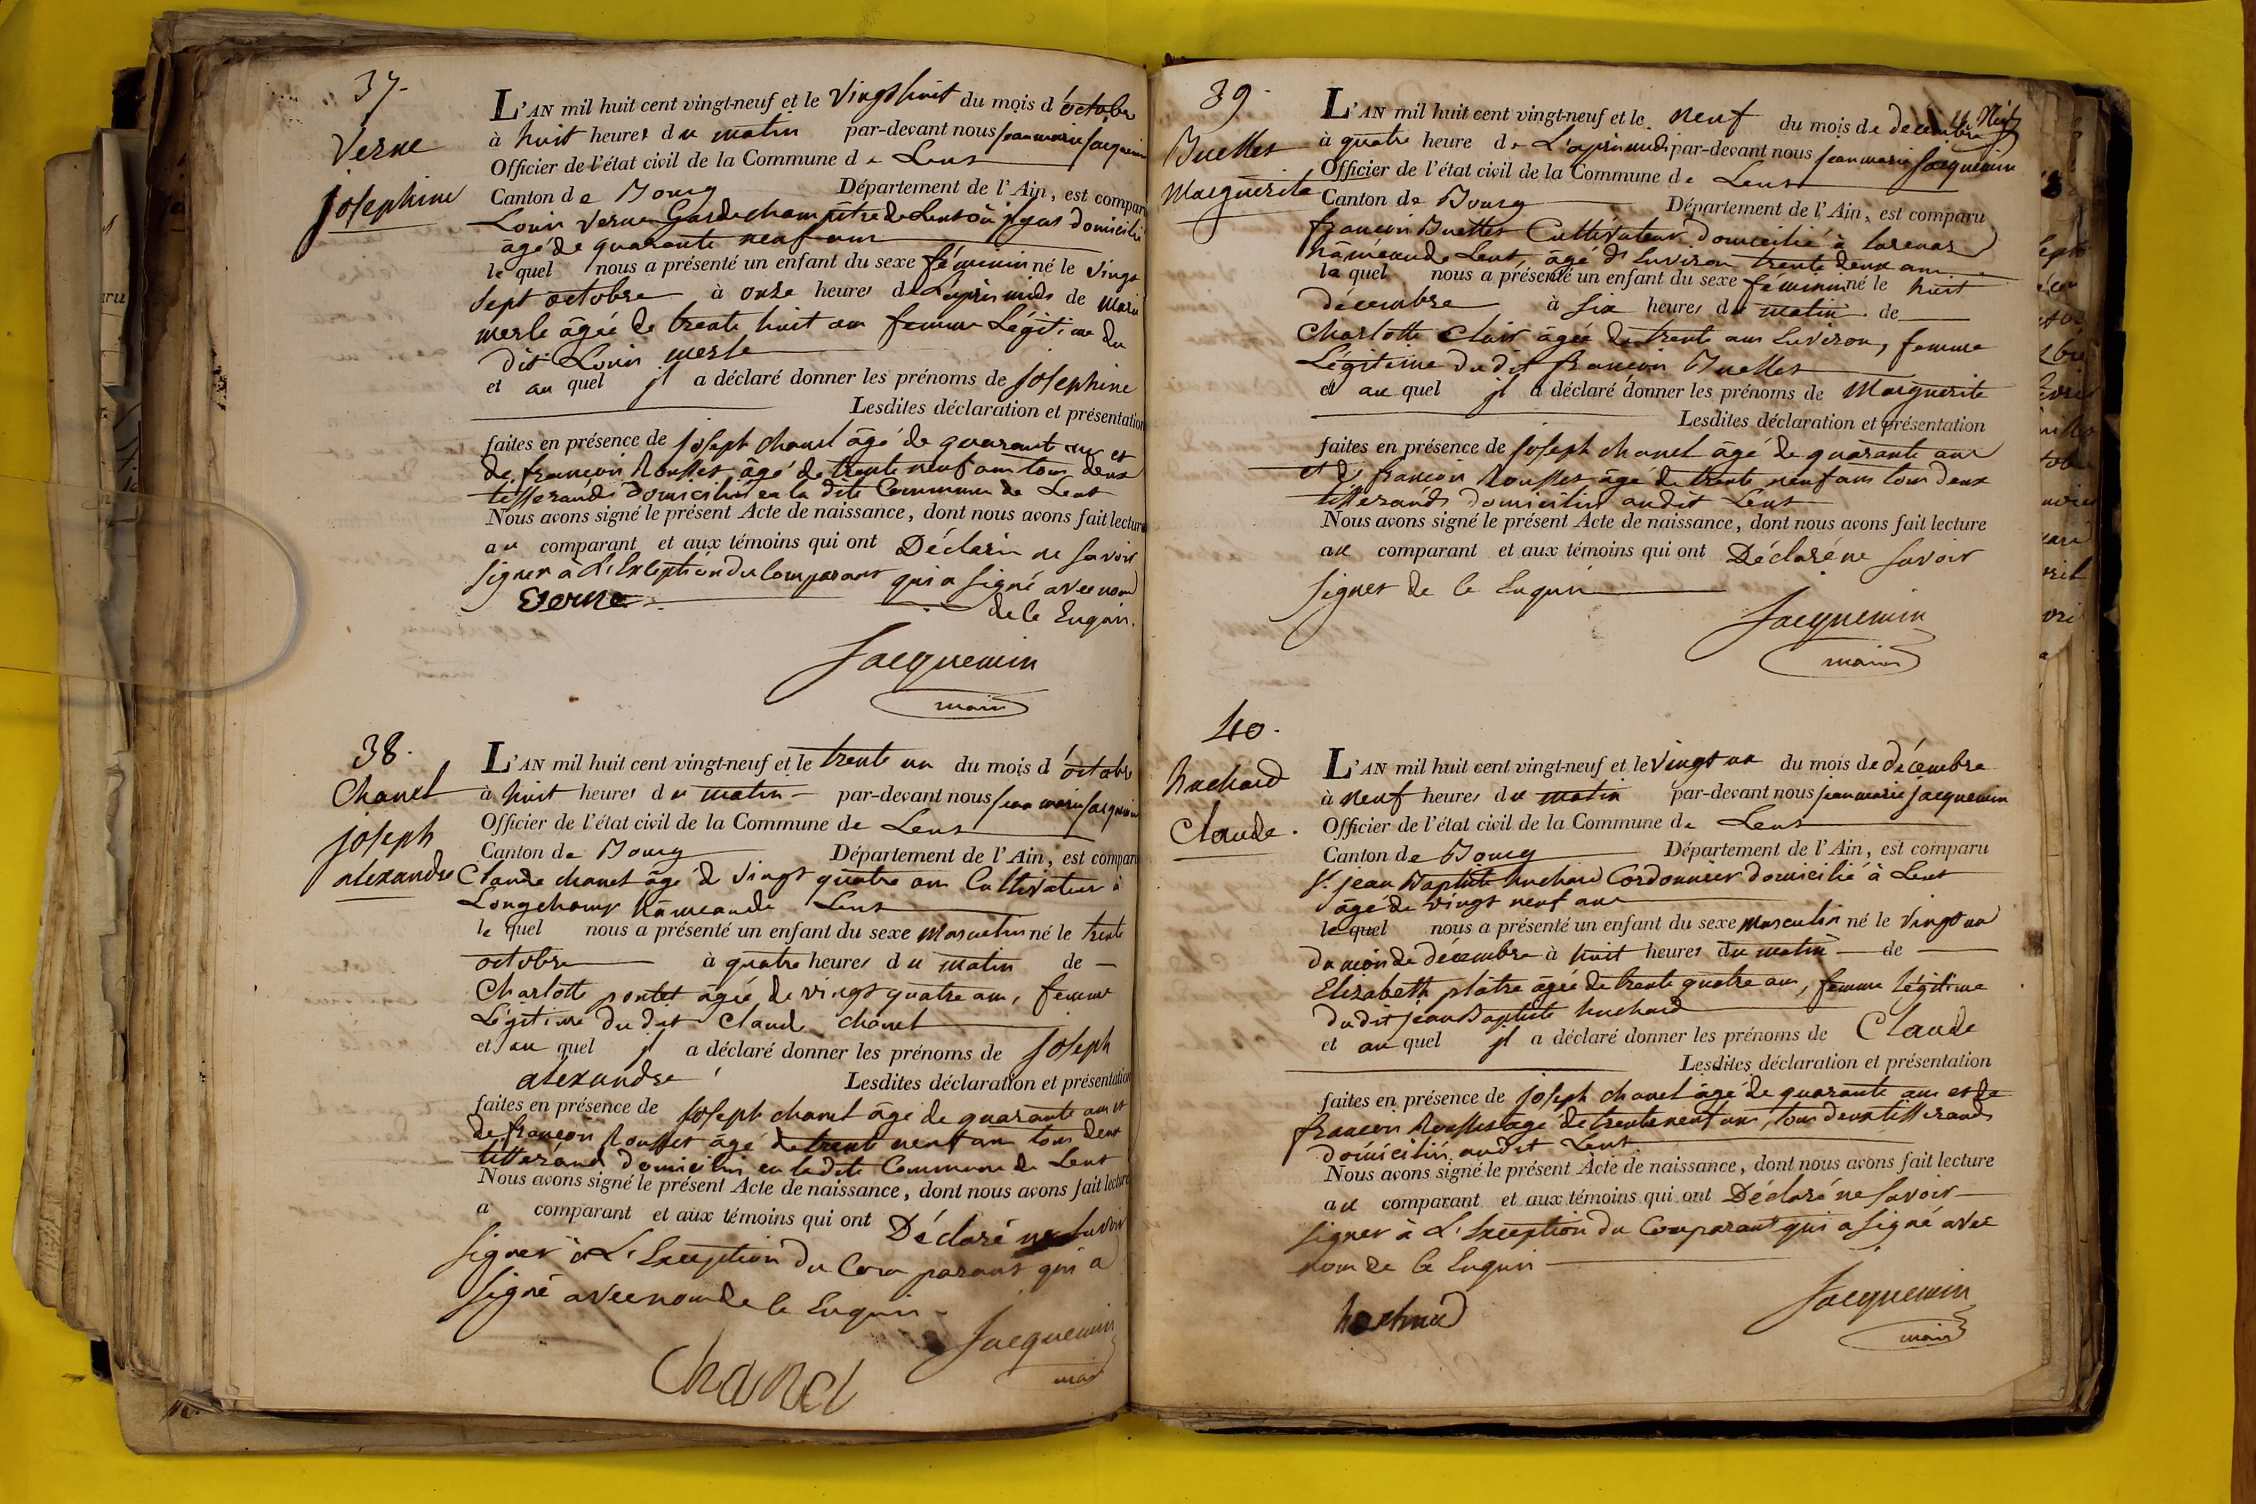 37.
Verne
josephine
L'AN mil huit cent vingt-neuf et le vingt huit du mois d'octobre
à huit heures du matin par-devant nous jean marie jacquemin
Officier de l'état civil de la Commune de Lent
Canton de Bourg Département de l'Ain, est compar
Louis Verne Garde champêtre de Lent où jl est domicilié
âgé de quarante neuf ans
le quel nous a présenté un enfant du sexe féminin né le vingt
sept octobre à onze heures de L'après midi de marie
merle âgée de trente huit ans femme Légitime du
dit Louis merle
et au quel jl a déclaré donner les prénoms de josephine
Lesdites déclaration et présentation
faites en présence de joseph chanel âgé de quarante ans et
de françois Rousset âgé de trente neuf ans tous deux
tisserands domiciliés en la dite Commune de Lent
Nous avons signé le présent Acte de naissance, dont nous avons fait lecture
au comparant et aux témoins qui ont Déclaré ne savoir
signer à L'Exception du Comparant qui a signé avec nous
de ce Enquis.
Verne
Jacquemin
maire
38.
Chanel
joseph
alexandre
L'AN mil huit cent vingt-neuf et le trente un du mois d'octobre
à huit heures du matin par-devant nous jean marie jacquemin
Officier de l'état civil de la Commune de Lent
Canton de Bourg Département de l'Ain, est compar
Claude chanel âgé de vingt quatre ans Cultivateur à
Longchamp hâmeau de Lent
le quel nous a présenté un enfant du sexe masculin né le trente
octobre à quatre heures du matin de
Charlotte pontet âgée de vingt quatre ans, femme
Légitime du dit Claude chanel
et au quel jl a déclaré donner les prénoms de joseph
alexandre Lesdites déclaration et présentation
faites en présence de joseph chanel âgé de quarante ans et
de françois Rousset âgé de trente neuf ans tous deux
tisserands domiciliés en la dite Commune de Lent
Nous avons signé le présent Acte de naissance, dont nous avons fait lecture
a comparant et aux témoins qui ont Déclaré ne savoir
signer à L'Exception du Comparant qui a
signé avec nous de ce Enquis
Jacquemin
maire
Chanel
39.
Buellet
Marguerite
L'AN mil huit cent vingt-neuf et le neuf du mois de décembre
à quatre heure de L'après midi par-devant nous jean marie jacquemin
Officier de l'état civil de la Commune de Lent
Canton de Bourg Département de l'Ain, est comparu
françois Buellet Cultivateur domicilié à
hâmeau de Lent, âgé d'Environ trente deux ans
le quel nous a présenté un enfant du sexe féminin né le huit
decembre à six heures du matin de
Charlotte Clair âgée de trente ans Environ, femme
Légitime du dit françois Buellet
et au quel jl a déclaré donner les prénoms de Marguerite
Lesdites déclaration et présentation
faites en présence de joseph chanel âgé de quarante ans
et de françois Rousset âgé de trente neuf ans tous deux
tisserands domiciliés audit Lent
Nous avons signé le présent Acte de naissance, dont nous avons fait lecture
au comparant et aux témoins qui ont Déclaré ne savoir
signer de ce Enquis
Jacquemin
maire
40.
huchard
Claude.
L'AN mil huit cent vingt-neuf et le vingt un du mois de décembre
à neuf heures du matin par-devant nous jean marie jacquemin
Officier de l'état civil de la Commune de Lent
Canton de Bourg Département de l'Ain, est comparu
Sr. jean Baptiste huchard Cordonnier domicilié à Lent
âgé de vingt neuf ans
le quel nous a présenté un enfant du sexe masculin né le vingt un
du mois de décembre à huit heures du matin de
Elizabeth platre âgée de trente quatre ans, femme légitime
du dit jean Baptiste huchard
et au quel jl a déclaré donner les prénoms de Claude
Lesdites déclaration et présentation
faites en présence de joseph chanel âgé de quarante ans et de
françois Rousset âgé de trente neuf ans, tous deux tisserands
domiciliés audit Lent
Nous avons signé le présent Acte de naissance, dont nous avons fait lecture
au comparant et aux témoins qui ont Déclaré ne savoir
signer à L'Exception du Comparant qui a signé avec
nous de ce Enquis
Jacquemin
maire
huchard